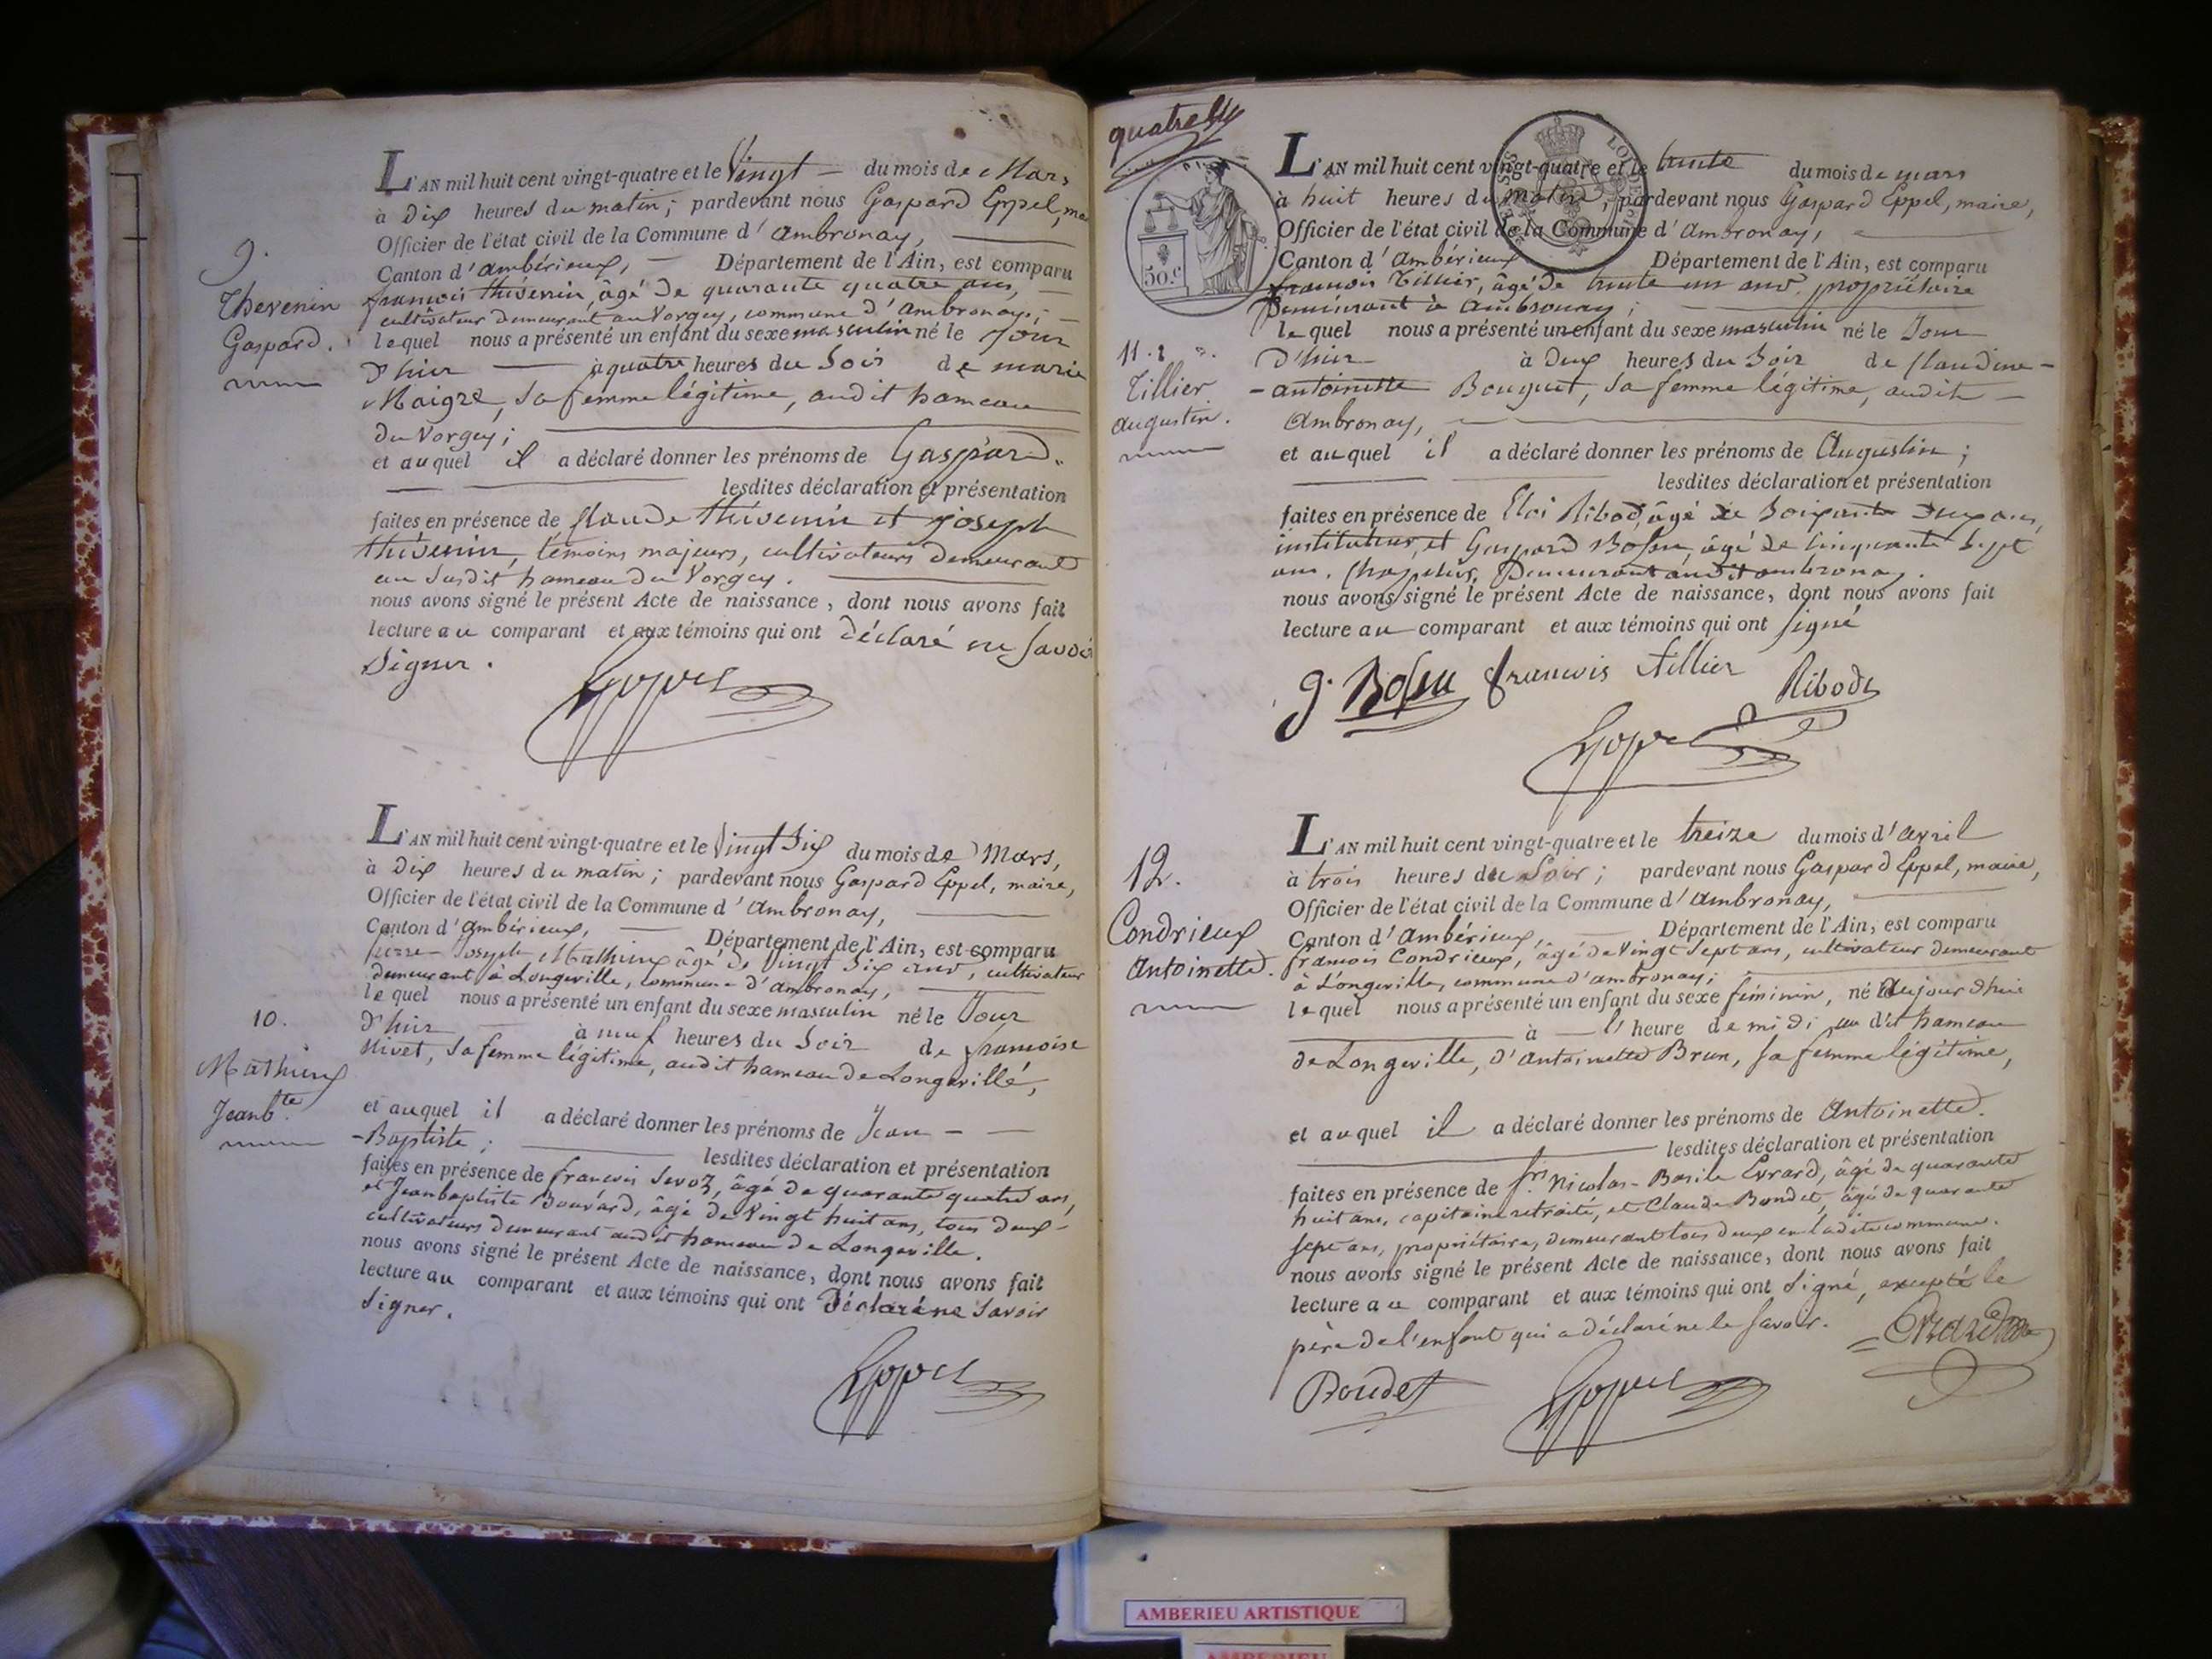 L'AN mil huit cent vingt-quatre et le Vingt du mois de Mars
à Dix heures du matin; pardevant nous Gaspard Eppel, mai
Officier de l'état civil de la Commune d'ambronay,
Canton d'ambérieux, Département de l'Ain, est comparu
françois thévenin, âgé de quarante quatre ans,
cultivateur demeurant au Vorgey, commune d'ambronay;
lequel nous a présenté un enfant du sexe masculin né le Jour
d'hier à quatre heures du Soir de marie
Maigre, sa femme légitime, audit hameau
du Vorgey;
et auquel il a déclaré donner les prénoms de Gaspard.
lesdites déclaration et présentation
faites en présence de Claude thévenin et joseph
thévenin, témoins majeurs, cultivateurs demeurant
au susdit hameau du Vorgey.
nous avons signé le présent Acte de naissance, dont nous avons fait
lecture au comparant et aux témoins qui ont déclaré ne savoir
signer.
Eppel
9.
Thevenin
Gaspard.
L'AN mil huit cent vingt-quatre et le Vingt Six du mois de Mars,
à Dix heures du matin; pardevant nous Gaspard Eppel, maire,
Officier de l'état civil de la Commune d'ambronay,
Canton d'ambérieux, Département de l'Ain, est comparu
pierre-Joseph Mathieux âgé de Vingt Six ans, cultivateur
demeurant à Longeville, commune d'ambronay,
lequel nous a présenté un enfant du sexe masculin né le Jour
d'hier à neuf heures du Soir de françoise
Nivet, sa femme légitime, audit hameau de Longeville,
et auquel il a déclaré donner les prénoms de Jean-
-Baptiste; lesdites déclaration et présentation
faites en présence de françois Savoz, âgé de quarante quatre ans,
et Jeanbaptiste Bouvard, âgé de Vingt huit ans, tous deux
cultivateurs demeurant audit hameau de Longeville.
nous avons signé le présent Acte de naissance, dont nous avons fait
lecture au comparant et aux témoins qui ont déclaré ne savoir
signer.
Eppel
10.
Mathieux
Jeanb.te
quatre
50.c
L'AN mil huit cent vingt-quatre et le trente du mois de mars
à huit heures du matin, pardevant nous Gaspard Eppel, maire,
Officier de l'état civil de la Commune d'ambronay,
Canton d'ambérieux Département de l'Ain, est comparu
françois Tillier, âgé de trente un ans, propriétaire
demeurant à ambronay;
lequel nous a présenté un enfant du sexe masculin né le Jour
d'hier à deux heures du Soir de Claudine-
-antoinette Bouquet, sa femme légitime, audit
Ambronay,
et auquel il a déclaré donner les prénoms de Augustin;
lesdites déclaration et présentation
faites en présence de Eloi Ribod, âgé de Soixante deux ans,
instituteur, et Gaspard Bossu, âgé de cinquante sept
ans, Chapelier, Demeurant audit ambronay.
nous avons signé le présent Acte de naissance, dont nous avons fait
lecture au comparant et aux témoins qui ont signé
g. Bossu françois tillier Ribod
Eppel
11.
Tillier
augustin.
L'AN mil huit cent vingt-quatre et le treize du mois d'avril
à trois heures du Soir; pardevant nous Gaspard Eppel, maire,
Officier de l'état civil de la Commune d'ambronay,
Canton d'ambérieux, Département de l'Ain, est comparu
françois Condrieux, âgé de Vingt Sept ans, cultivateur demeurant
à Longeville, commune d'ambronay;
lequel nous a présenté un enfant du sexe féminin, né aujourd'hui
à l'heure de midi au dit hameau
de Longeville, d'antoinette Brun, sa femme légitime,
et auquel il a déclaré donner les prénoms de Antoinette.
lesdites déclaration et présentation
faites en présence de Nicolas-Basile Evrard, âgé de quarante
huit ans, capitaine retraité, et Claude Boudet, âgé de quarante
sept ans, propriétaire, demeurant tous deux en ladite commune.
nous avons signé le présent Acte de naissance, dont nous avons fait
lecture au comparant et aux témoins qui ont signé, excepté le
père de l'enfant qui a déclaré ne le savoir.
Evrard
Boudet Eppel
12.
Condrieux
Antoinette.
AMBERIEU ARTISTIQUE
AMBERIEU